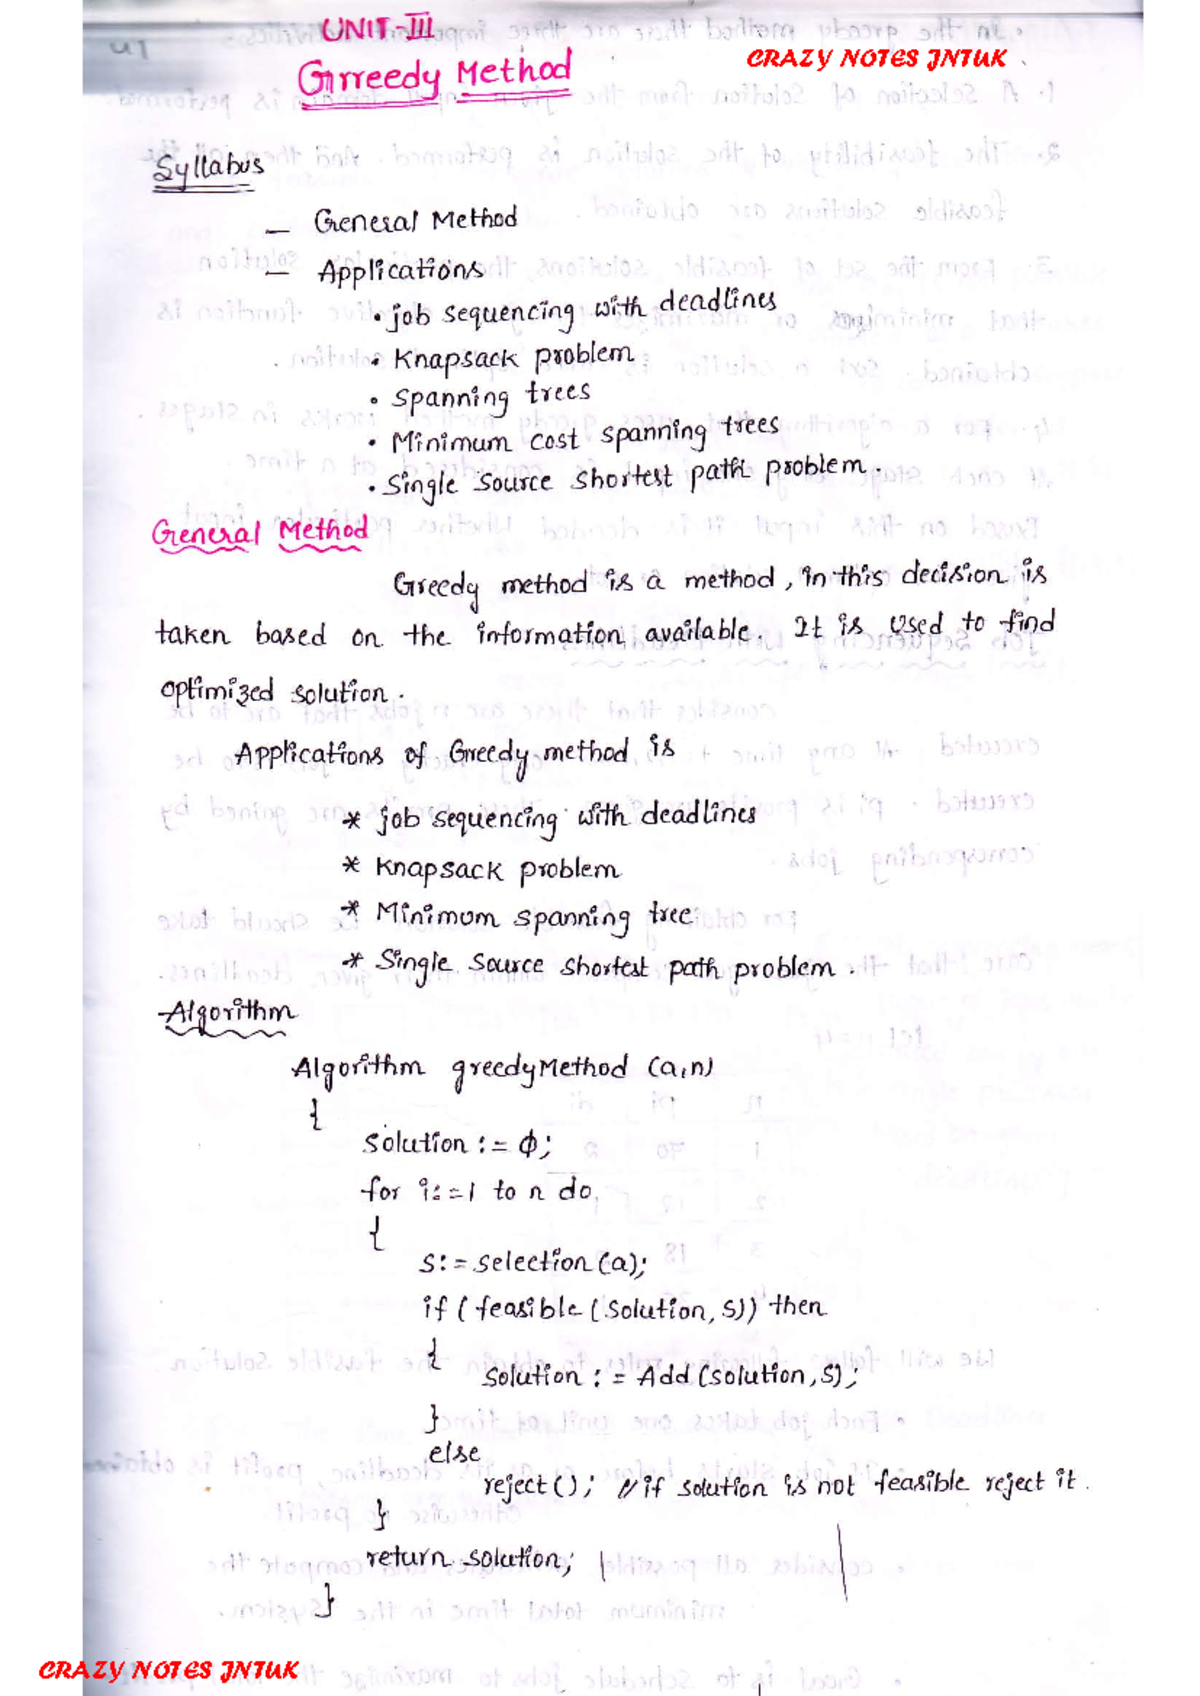 UNIT-III
CRAZY NOTES JNTUK
Greedy Method
Syllabus
— General Method
— Applications
• job sequencing with deadlines
• Knapsack problem
• spanning trees
• Minimum cost spanning trees
• Single Source Shortest path problem.
General Method
Greedy method is a method, in this decision is
taken based on the information available. It is used to find
optimized solution.
Applications of Greedy method is
* job sequencing with deadlines
* Knapsack problem
* Minimum spanning tree
* Single Source shortest path problem.
Algorithm
Algorithm greedyMethod (a,n)
{
solution := Φ;
for i:=1 to n do
{
s:= selection (a);
if (feasible (solution, s)) then
{
solution := Add (solution, s);
}
else
reject(); // if solution is not feasible reject it.
}
return solution;
}
CRAZY NOTES JNTUK